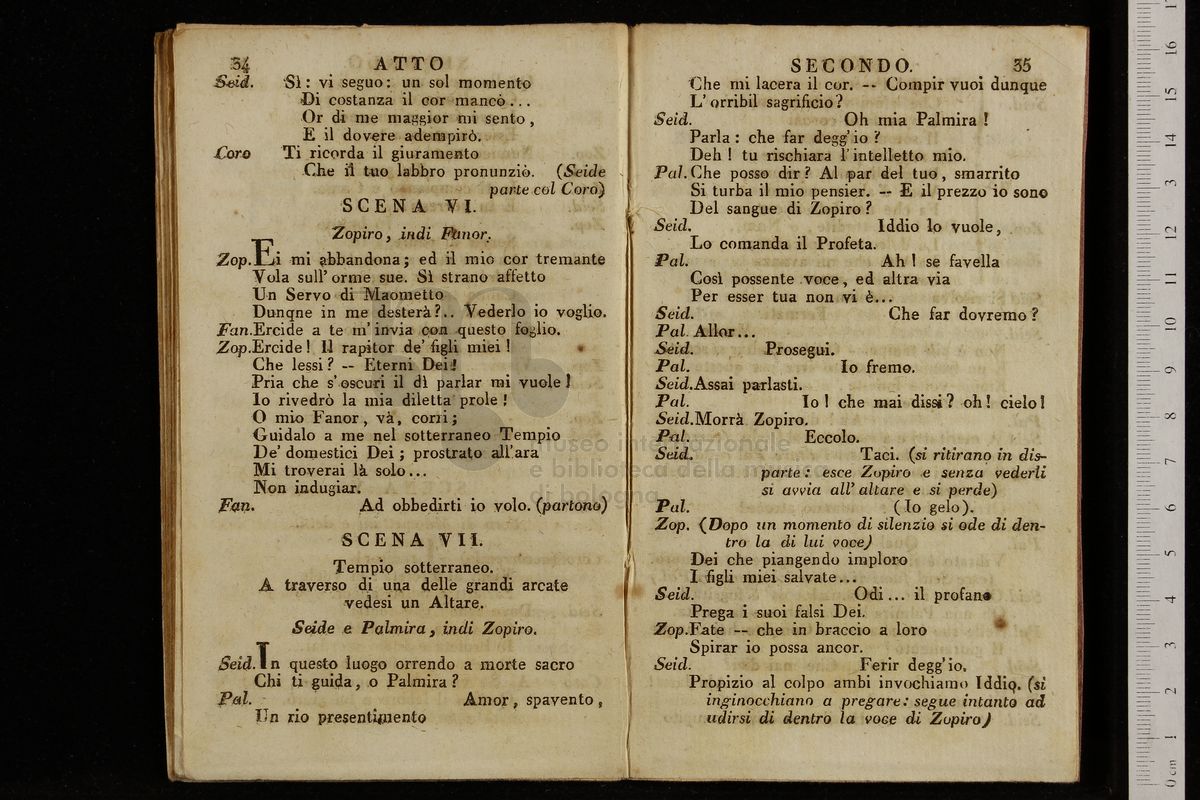 34 ATTO
Seid. Sì: vi seguo: un sol momento
Di costanza il cor mancò...
Or di me maggior mi sento,
E il dovere adempirò.
Coro Ti ricorda il giuramento
Che il tuo labbro pronunziò. (Seide
parte col Coro)
SCENA VI.
Zopiro, indi Fanor.
Zop. Ei mi abbandona; ed il mio cor tremante
Vola sull' orme sue. Sì strano affetto
Un Servo di Maometto
Dunqne in me desterà?.. Vederlo io voglio.
Fan. Ercide a te m' invia con questo foglio.
Zop. Ercide! Il rapitor de' figli miei!
Che lessi? -- Eterni Dei!
Pria che s' oscuri il dì parlar mi vuole!
Io rivedrò la mia diletta prole!
O mio Fanor, và, corri;
Guidalo a me nel sotterraneo Tempio
De' domestici Dei; prostrato all' ara
Mi troverai là solo...
Non indugiar.
Fan. Ad obbedirti io volo. (partono)
SCENA VII.
Tempio sotterraneo.
A traverso di una delle grandi arcate
vedesi un Altare.
Seide e Palmira, indi Zopiro.
Seid. In questo luogo orrendo a morte sacro
Chi ti guida, o Palmira?
Pal. Amor, spavento,
Un rio presentimento
SECONDO. 35
Che mi lacera il cor. -- Compir vuoi dunque
L' orribil sagrificio?
Seid. Oh mia Palmira!
Parla: che far degg' io?
Deh! tu rischiara l' intelletto mio.
Pal. Che posso dir? Al par del tuo, smarrito
Si turba il mio pensier. -- E il prezzo io sono
Del sangue di Zopiro?
Seid. Iddio lo vuole,
Lo comanda il Profeta.
Pal. Ah! se favella
Così possente voce, ed altra via
Per esser tua non vi è...
Seid. Che far dovremo?
Pal. Allor...
Seid. Prosegui.
Pal. Io fremo.
Seid. Assai parlasti.
Pal. Io! che mai dissi? oh! cielo!
Seid. Morrà Zopiro.
Pal. Eccolo.
Seid. Taci. (si ritirano in dis-
parte: esce Zopiro e senza vederli
si avvia all' altare e si perde)
Pal. (Io gelo).
Zop. (Dopo un momento di silenzio si ode di den-
tro la di lui voce)
Dei che piangendo imploro
I figli miei salvate...
Seid. Odi... il profano
Prega i suoi falsi Dei.
Zop. Fate -- che in braccio a loro
Spirar io possa ancor.
Seid. Ferir degg' io.
Propizio al colpo ambi invochiamo Iddio. (si
inginocchiano a pregare: segue intanto ad
udirsi di dentro la voce di Zopiro)
museo internazionale
e biblioteca della musica
di bologna
0 cm 1 2 3 4 5 6 7 8 9 10 11 12 13 14 15 16 17